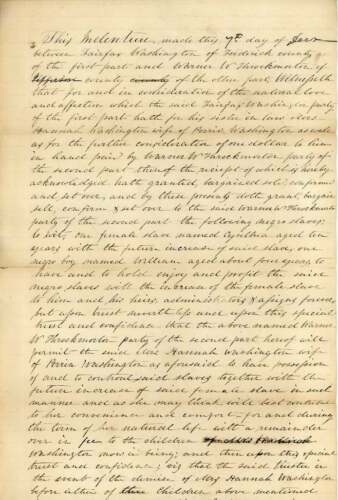 This Indenture, made this 7th day of
between Fairfax Washington of Frederick county
of the first part and Warner W Throckmorton of
Jefferson county county of the other part, Witnesseth
that for and in consideration of the natural love
and affection which the said Fairfax Washington party
of the first part hath for his sister in law Mrs
Hannah Washington wife of Perrin Washington as well
as for the further consideration of one dollar to him
in hand paid by Warner W Throckmorton party of
the second part the receipt of which is hereby
acknowledged hath granted, bargained sold confirmed
and set over, and by these presents doth grant bargain
sell, confirm & set over to the said Warner W Throckmorton
party of the second part the following negro slaves;
to wit; one female slave named Cynthia, aged ten
years with the future increase of said slave, one
negro boy named William aged about four years to
have and to hold enjoy and profit the said
negro slaves with the increase of the female slave
to him and his heirs, administrators & assigns forever,
but upon trust nevertheless and upon this special
trust and confidence that the above named Warner
W Throckmorton party of the second part hereof will
permit the said Mrs Hannah Washington wife
of Perrin Washington as aforesaid to have possession
of and to control said slaves together with the
future increase of said female slave in such
manner and as she may think will best conduce
to her convenience and comfort, for and during
the term of her natural life with a remainder
over in fee to the children
Washington now in being; and then upon this special
trust and confidence; viz that the said trustee in
the event of the demise of Mrs Hannah Washington
before either of children above mentioned